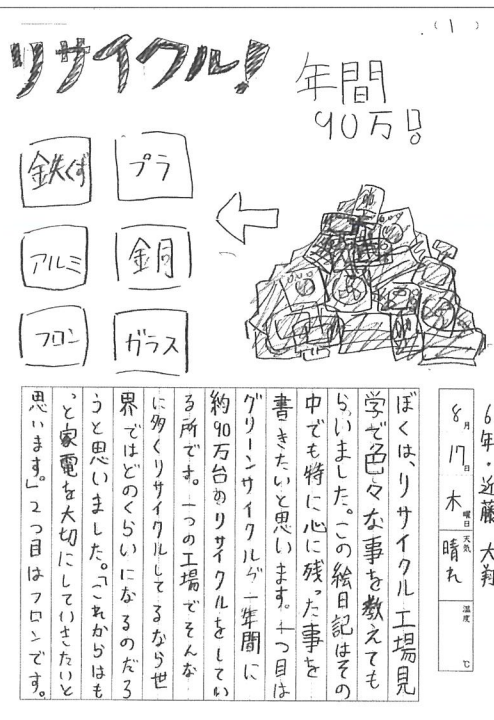 (1)
リサイクル!
年間
90万!!
鉄くず
プラ
アルミ
銅
フロン
ガラス
6年・近藤 大翔
8月17日 木曜日 天気 晴れ 温度 ℃
ぼくは、リサイクル工場見
学で色々な事を教えても
らいました。この絵日記はその
中でも特に心に残った事を
書きたいと思います。一つ目は
グリーンサイクルが一年間に
約90万台のリサイクルをしてい
る所です。一つの工場でそんな
に多くリサイクルしてるなら世
界ではどのくらいになるのだろ
うと思いました。「これからはも
っと家電を大切にしていきたいと
思います。」2つ目はフロンです。